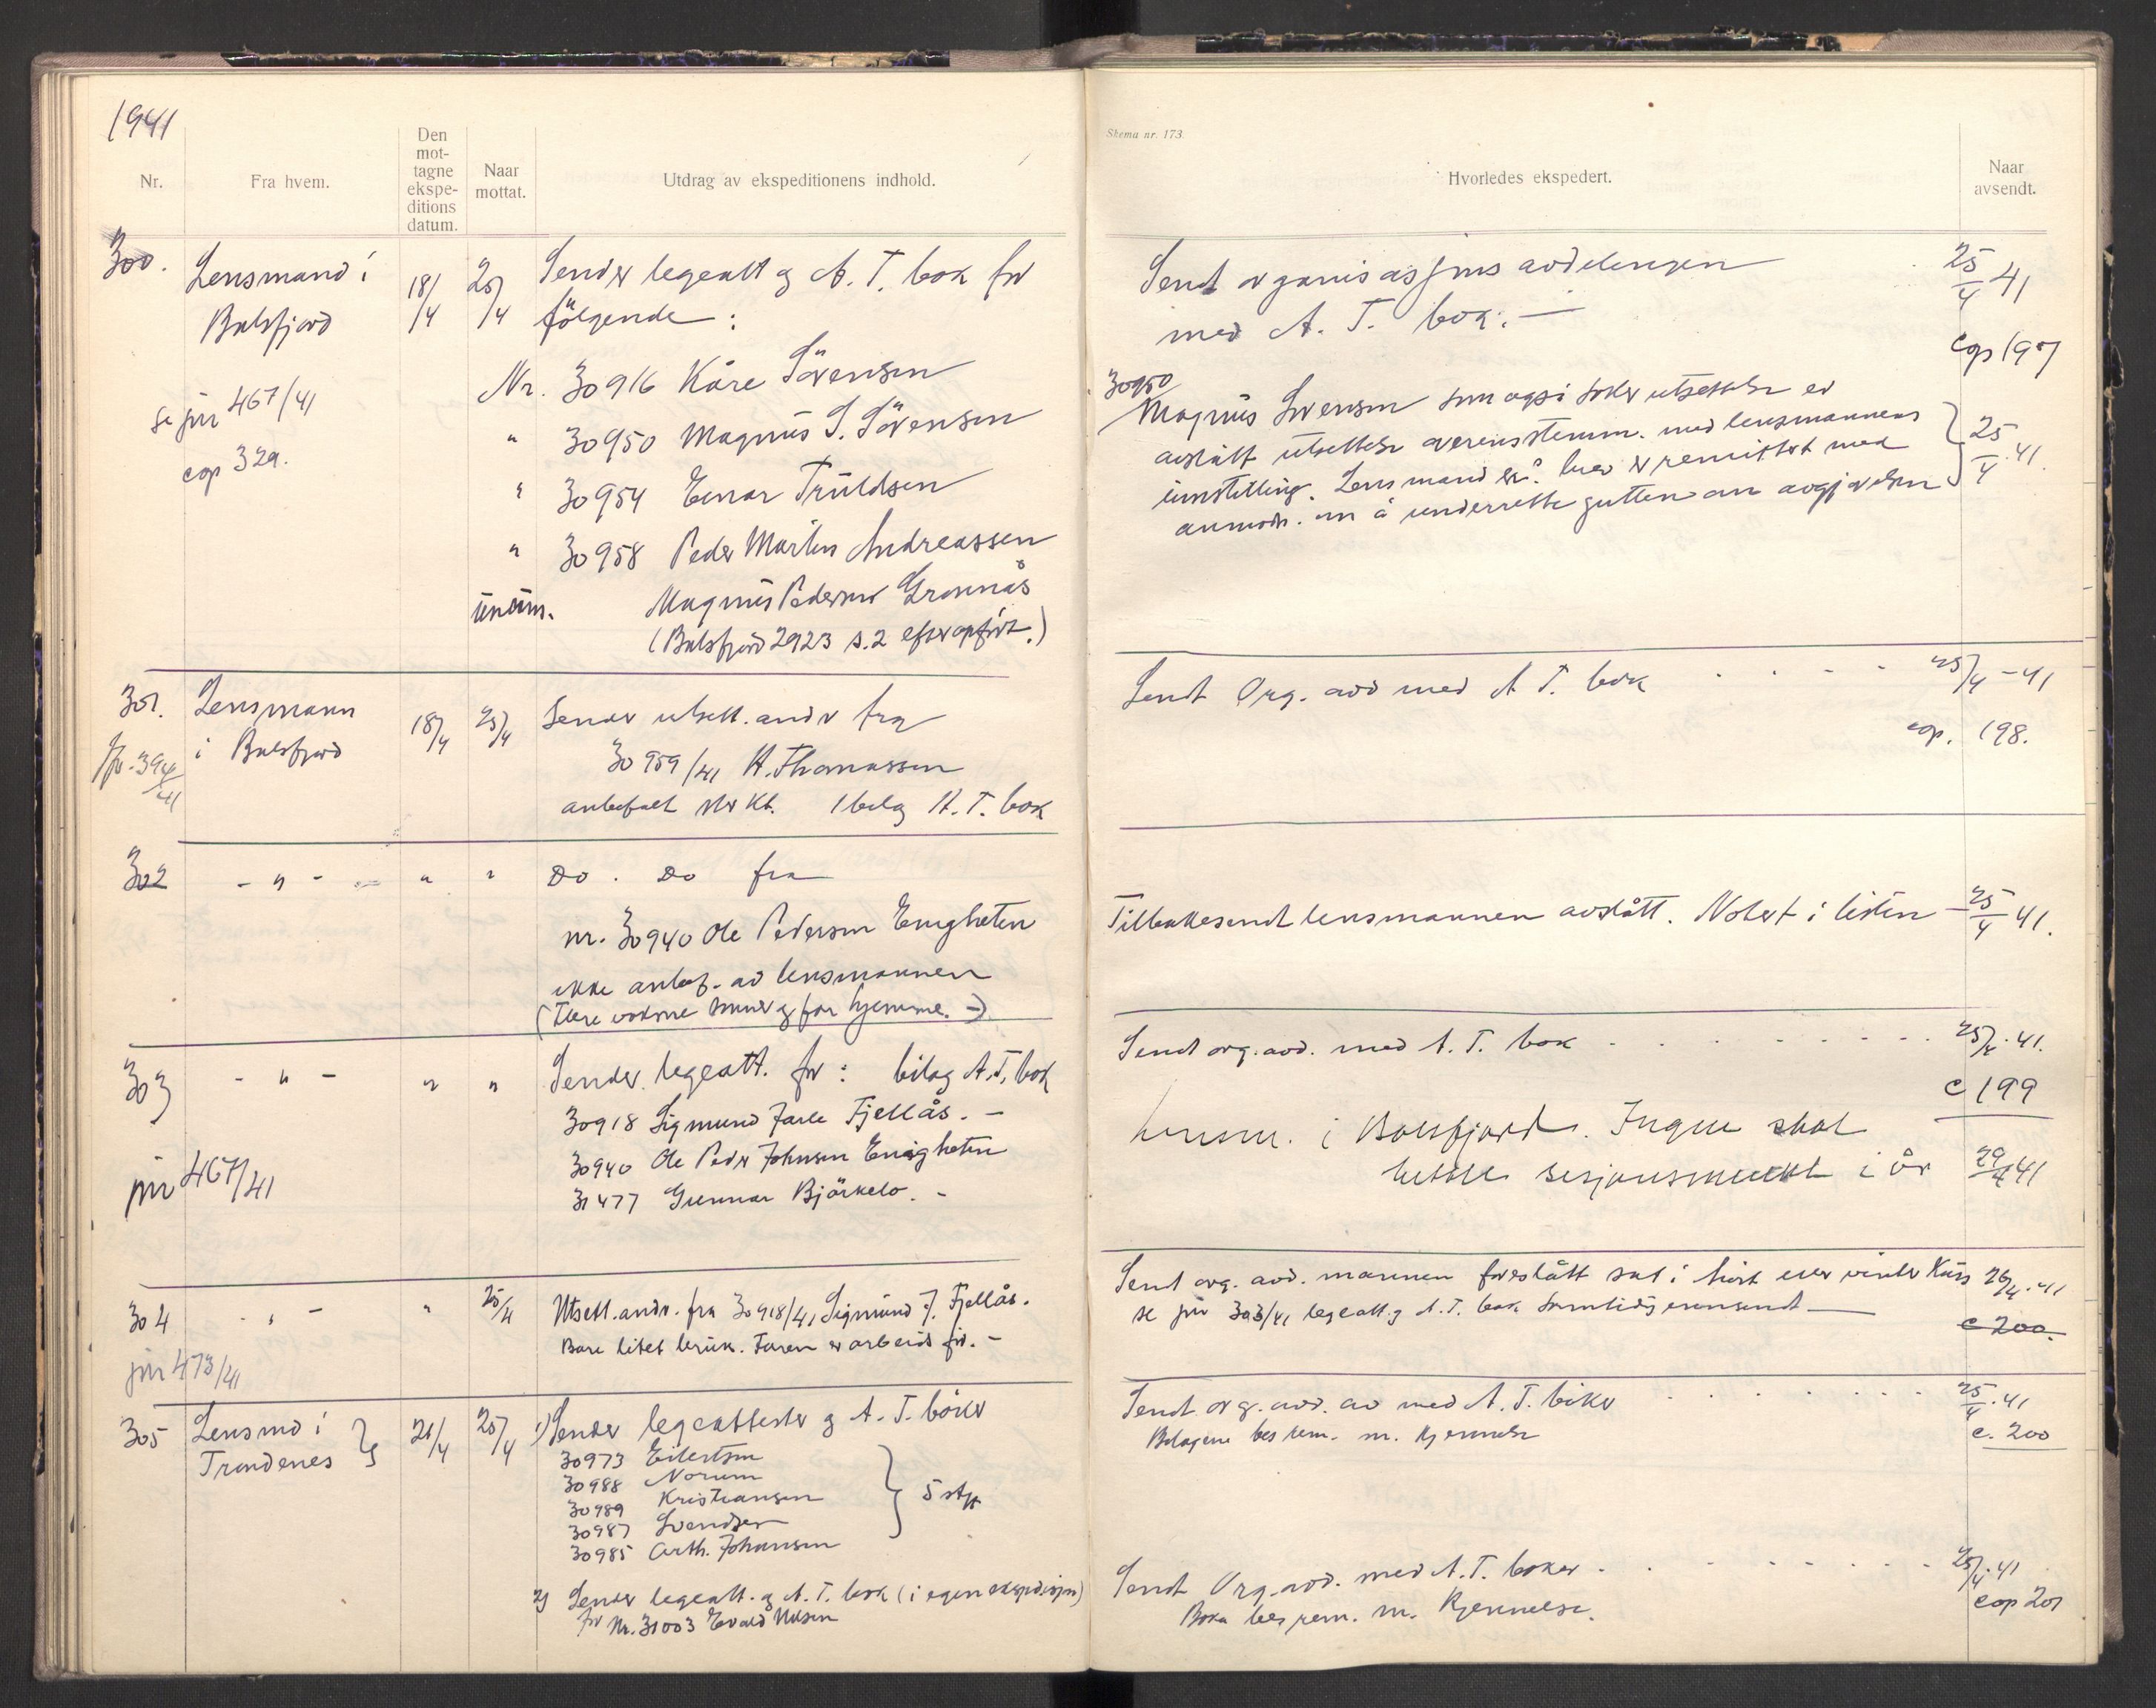 1941
Nr.
Fra hvem.
Den
mot-
tagne
ekspe-
ditions
datum.
Naar
mottat.
Utdrag av ekspeditionens indhold.
300.
Lensmand i
Balsfjord
18/4
25/4
Sender legeatt og A. T. bok for
følgende:
se jnr 467/41
cop 329.
Nr. 30916 Kåre Sörensen
" 30950 Magnus S. Sörensen
" 30954 Einar Truldsen
" 30958 Peder Martin Andreassen
unum. Magnus Pedersen Grønnås
(Balsfjord 2923 s.2 efteropført.)
301.
Lensmann
i Balsfjord
jfr. 394/41
18/4
25/4
Sender utsett. andr fra
30959/41 H. Thomassen
anbefalt 1 bilag A. T. bok
302
- " - " "
Do. Do fra
nr. 30940 Ole Pedersen Enigheten
ikke anbef. av lensmannen
(Flere voksne og far hjemme. -)
303
- " - " "
Sender legeatt. for: bilag A.T. bok
30918 Sigmund Jarle Fjellås. -
30940 Ole Peder Johnsen Enigheten
31477 Gunnar Björkelo. -
jnr 467/41
304
- " - " 25/4
Utsett. andr. fra 30918/41 Sigmund J. Fjellås.
Bare litet bruk. Faren er arbeids før. -
jnr 473/41
305
Lensmd i
Trondenes
21/4
25/4
1) Sender legeattester og A. T. böker
30973 Eilertsen
30988 Norum
30989 Kristiansen
30987 Svendsen
30985 Arth. Johansen
5 stk
2) Sender legeatt. og A. T. bok (i egen ekspedisjon)
for Nr. 31003 Evald Nilsen
Skema nr. 173.
Hvorledes ekspedert.
Naar
avsendt.
Sendt organisasjons avdelingen
med A. T. bok. —
25/4 41
cop 197
30950
Magnus Sørensen som også søker utsettelse er
avslått utsettelse overensstemm. med lensmannens
innstilling. Lensmandens brev er remittert med
anmodn. om å underrette gutten om avgjørelsen
25/4. 41.
Sendt Org. avd med A T. bok . . - -
25/4 - 41
cop. 198.
Tilbakesendt lensmannen avslått. Notert i listen —
25/4 41.
Sendt org. avd. med A. T. bok . . . . . . . .
25/4. 41.
c 199
Lensm. i Balsfjord. Ingen skal
sesjonsmøte i år
29/4 41
Sent org. avd. mannen foreslått sat i høst eller vinter Kurs
26/4. 41
se jnr 303/41 legeatt. og A. T. bok samtidig oversendt —
c 200.
Sendt org. avd. av med A. T. böker . . . . . . .
25/4. 41
Bilagene bes rem. m. kjennelse
c. 200
Sendt Org. avd. med A. T. boker . . - - - - -
25/4. 41
Boka bes rem. m. Kjennelse.
cop 201